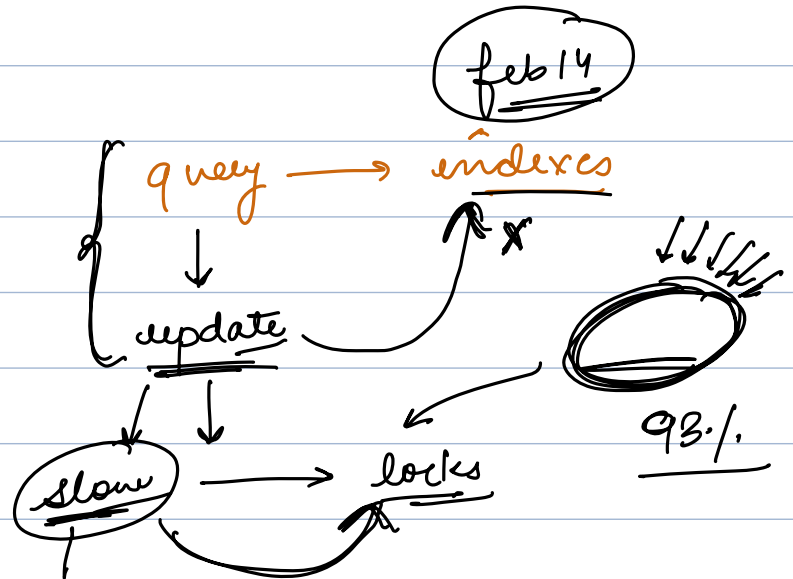 feb 14
query → indexes
x
update
93%
slow → locks